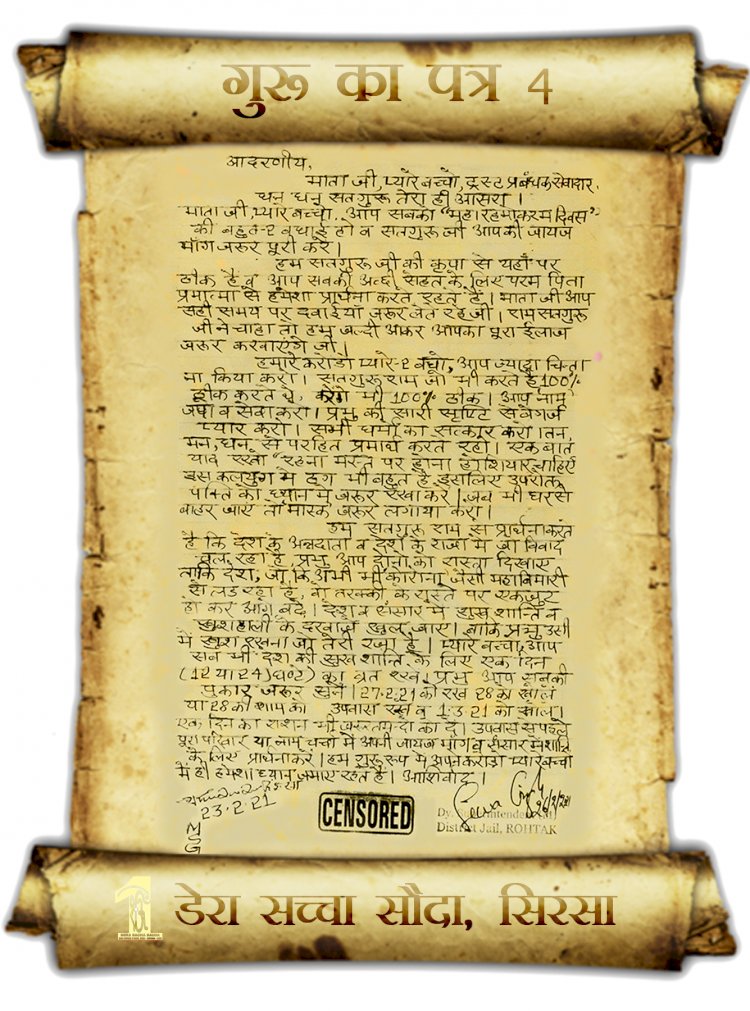 गुरू का पत्र 4
आदरणीय,
माता जी, प्यारे बच्चो, ट्रस्ट प्रबंधक सेवादार,
धन धन सतगुरू तेरा ही आसरा।
माता जी, प्यारे बच्चो, आप सबको "महा रहमोकरम दिवस"
की बहुत-2 बधाई हो व सतगुरू जी आपकी जायज
माँग जरूर पूरी करें।
हम सतगुरू जी की कृपा से यहाँ पर
ठीक हैं व आप सबकी अच्छी सेहत के लिए परम पिता
प्रमात्मा से हमेशा प्रार्थना करते रहते हैं। माता जी आप
सही समय पर दवाईयां जरूर लेते रहें जी। राम सतगुरू
जी ने चाहा तो हम जल्दी आकर आपका पूरा ईलाज
जरूर करवाएंगे जी।
हमारे करोड़ों प्यारे-2 बच्चो, आप ज्यादा चिन्ता
ना किया करो। सतगुरू राम जो भी करते हैं 100%
ठीक करते थे, करेंगे भी 100% ठीक। आप नाम
जपो व सेवा करो। प्रभु की सारी सृष्टि से बेगर्ज
प्यार करो। सभी धर्मों का सत्कार करो। तन,
मन, धन से परहित प्रमार्थ करते रहो। एक बात
याद रखो "रहना मस्त पर होना होशियार चाहिए"
इस कलयुग में ठग भी बहुत हैं इसलिए उपरोक्त
पंक्ति का ध्यान में जरूर रखा करें। जब भी घर से
बाहर जाएं तो मास्क जरूर लगाया करो।
हम सतगुरू राम से प्रार्थना करते
हैं कि देश के अन्नदाता व देश के राजा में जो विवाद
चल रहा है, प्रभु आप दोनों को रास्ता दिखाएं
ताकि देश, जो कि अभी भी कोरोना जैसी महाबिमारी
से लड़ रहा है, वो तरक्की के रास्ते पर एकजुट
हो कर आगे बढ़े। देश व संसार में सुख शान्ति व
खुशहाली के दरवाजे खुल जाएं। बाकि प्रभु उसी
में खुश रखना जो तेरी रजा है। प्यारे बच्चो, आप
सब भी देश की सुख शान्ति के लिए एक दिन
(12 या 24) घण्टे का व्रत रखें, प्रभु आप सबकी
पुकार जरूर सुनें। 27.2.21 को रखें 28 को खोलें
या 28 की शाम को उपवास रखें व 1.3.21 को खोलें।
एक दिन का राशन भी जरूरतमंदों को दें। उपवास से पहले
पूरा परिवार या नाम चर्चा में अपनी जायज माँग व संसार में शान्ति
के लिए प्रार्थना करें। हम गुरू रूप में अपने करोड़ों प्यारे बच्चों
में ही हमेशा ध्यान जमाए रहते हैं। आशिर्वाद।
23.2.21
MSG
CENSORED
District Jail, ROHTAK
डेरा सच्चा सौदा, सिरसा